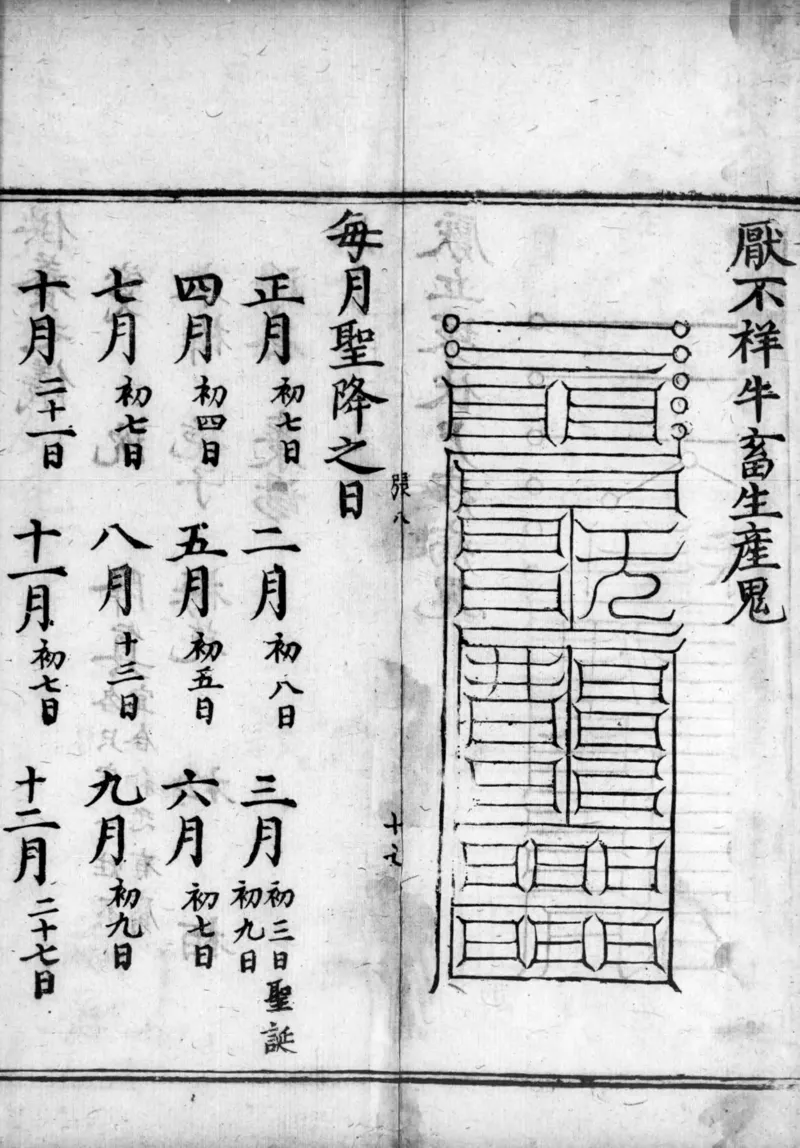 厭不祥牛畜生產鬼
張八
十七
每月聖降之日
正月 初七日
二月 初八日
三月 初三日聖誕 初九日
四月 初四日
五月 初五日
六月 初七日
七月 初七日
八月 十三日
九月 初九日
十月 二十一日
十一月 初七日
十二月 二十七日